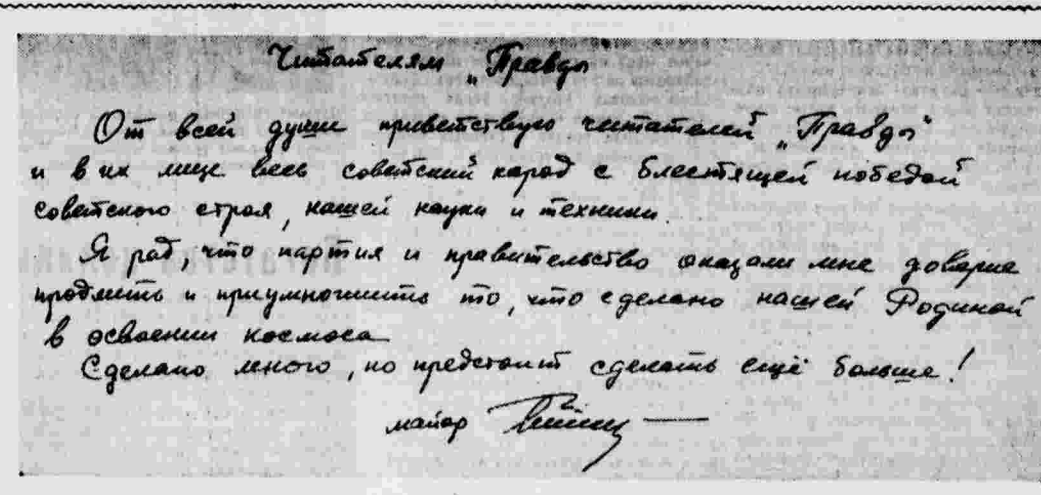 Читателям „Правды
От всей души приветствую читателей „Правды"
и в их лице весь советский народ с блестящей победой
советского строя, нашей науки и техники.
Я рад, что партия и правительство оказали мне доверие
продлить и приумножить то, что сделано нашей Родиной
в освоении космоса
Сделано много, но предстоит сделать ещё больше!
майор